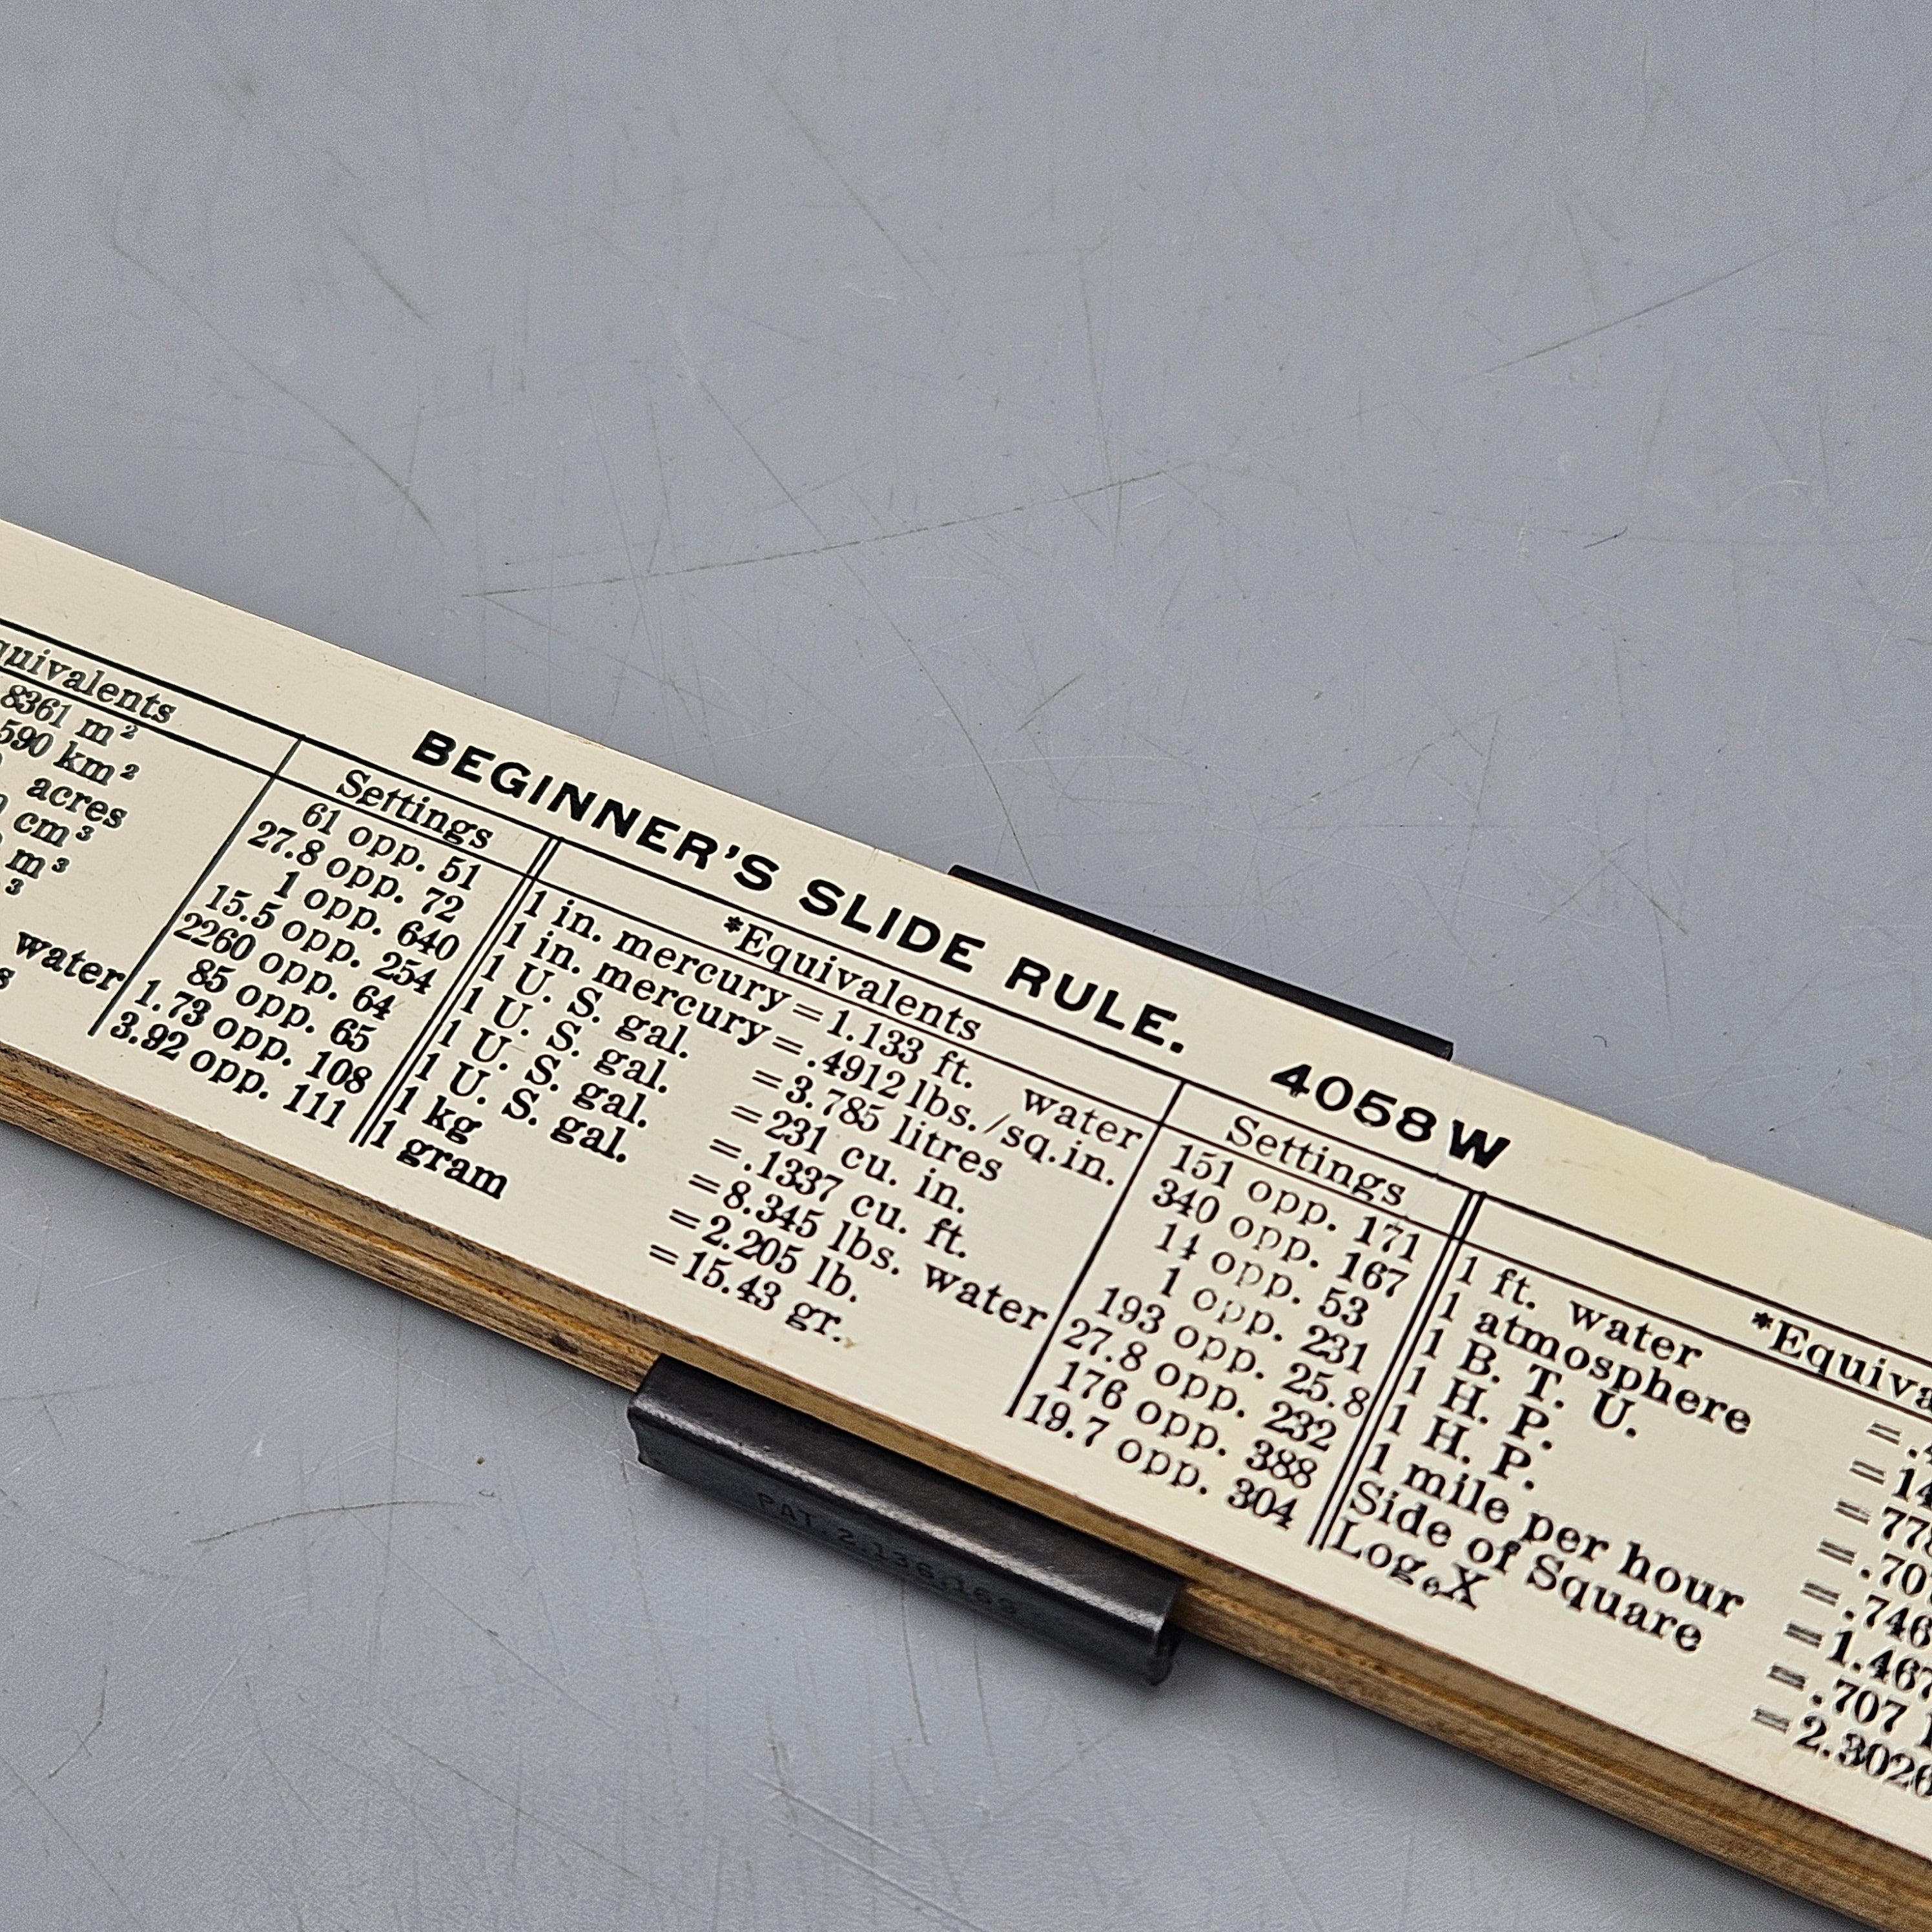 BEGINNER'S SLIDE RULE. 4058W
quivalents
8361 m²
590 km²
acres
cm³
m³
³
water
s
Settings
61 opp. 51
27.8 opp. 72
1 opp. 640
15.5 opp. 254
2260 opp. 64
85 opp. 65
1.73 opp. 108
3.92 opp. 111
*Equivalents
1 in. mercury=1.133 ft. water
1 in. mercury=.4912 lbs./sq.in.
1 U. S. gal. =3.785 litres
1 U. S. gal. =231 cu. in.
1 U. S. gal. =.1337 cu. ft.
1 U. S. gal. =8.345 lbs. water
1 kg =2.205 lb.
1 gram =15.43 gr.
Settings
151 opp. 171
340 opp. 167
14 opp. 53
1 opp. 231
193 opp. 25.8
27.8 opp. 232
176 opp. 388
19.7 opp. 304
*Equiva
1 ft. water =.4
1 atmosphere =14
1 B. T. U. =778
1 H. P. =.707
1 H. P. =.746
1 mile per hour =1.467
Side of Square =.707
LogₑX =2.3026
PAT. 2,136,169